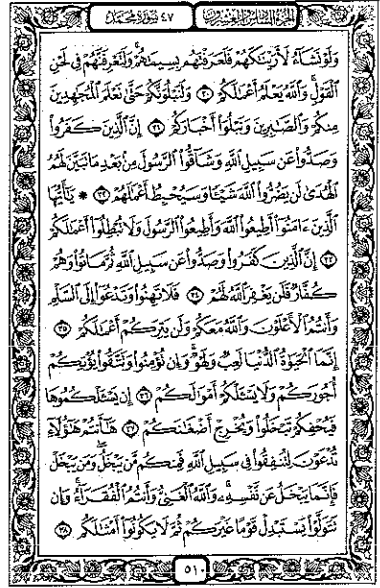 الجزء السادس والعشرون ٤٧ سورة محمد
وَلَوْ نَشَآءُ لَأَرَيْنَٰكَهُمْ فَلَعَرَفْتَهُم بِسِيمَٰهُمْ ۚ وَلَتَعْرِفَنَّهُمْ فِى لَحْنِ
ٱلْقَوْلِ ۚ وَٱللَّهُ يَعْلَمُ أَعْمَٰلَكُمْ ۝٣٠ وَلَنَبْلُوَنَّكُمْ حَتَّىٰ نَعْلَمَ ٱلْمُجَٰهِدِينَ
مِنكُمْ وَٱلصَّٰبِرِينَ وَنَبْلُوَا۟ أَخْبَارَكُمْ ۝٣١ إِنَّ ٱلَّذِينَ كَفَرُوا۟
وَصَدُّوا۟ عَن سَبِيلِ ٱللَّهِ وَشَآقُّوا۟ ٱلرَّسُولَ مِنۢ بَعْدِ مَا تَبَيَّنَ لَهُمُ
ٱلْهُدَىٰ لَن يَضُرُّوا۟ ٱللَّهَ شَيْـًٔا وَسَيُحْبِطُ أَعْمَٰلَهُمْ ۝٣٢ * يَٰٓأَيُّهَا
ٱلَّذِينَ ءَامَنُوٓا۟ أَطِيعُوا۟ ٱللَّهَ وَأَطِيعُوا۟ ٱلرَّسُولَ وَلَا تُبْطِلُوٓا۟ أَعْمَٰلَكُمْ
۝٣٣ إِنَّ ٱلَّذِينَ كَفَرُوا۟ وَصَدُّوا۟ عَن سَبِيلِ ٱللَّهِ ثُمَّ مَاتُوا۟ وَهُمْ
كُفَّارٌ فَلَن يَغْفِرَ ٱللَّهُ لَهُمْ ۝٣٤ فَلَا تَهِنُوا۟ وَتَدْعُوٓا۟ إِلَى ٱلسَّلْمِ
وَأَنتُمُ ٱلْأَعْلَوْنَ وَٱللَّهُ مَعَكُمْ وَلَن يَتِرَكُمْ أَعْمَٰلَكُمْ ۝٣٥
إِنَّمَا ٱلْحَيَوٰةُ ٱلدُّنْيَا لَعِبٌ وَلَهْوٌ ۚ وَإِن تُؤْمِنُوا۟ وَتَتَّقُوا۟ يُؤْتِكُمْ
أُجُورَكُمْ وَلَا يَسْـَٔلْكُمْ أَمْوَٰلَكُمْ ۝٣٦ إِن يَسْـَٔلْكُمُوهَا
فَيُحْفِكُمْ تَبْخَلُوا۟ وَيُخْرِجْ أَضْغَٰنَكُمْ ۝٣٧ هَٰٓأَنتُمْ هَٰٓؤُلَآءِ
تُدْعَوْنَ لِتُنفِقُوا۟ فِى سَبِيلِ ٱللَّهِ فَمِنكُم مَّن يَبْخَلُ ۖ وَمَن يَبْخَلْ
فَإِنَّمَا يَبْخَلُ عَن نَّفْسِهِۦ ۚ وَٱللَّهُ ٱلْغَنِىُّ وَأَنتُمُ ٱلْفُقَرَآءُ ۚ وَإِن
تَتَوَلَّوْا۟ يَسْتَبْدِلْ قَوْمًا غَيْرَكُمْ ثُمَّ لَا يَكُونُوٓا۟ أَمْثَٰلَكُم ۝٣٨
٥١٠